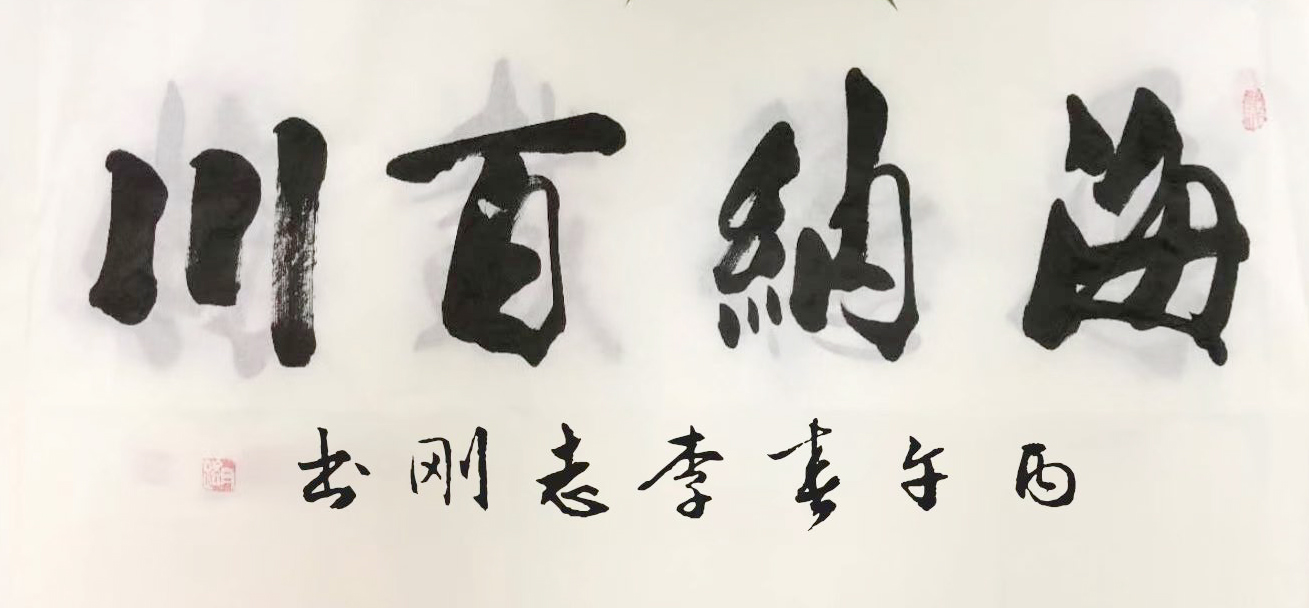 海納百川
丙午春李志刚书